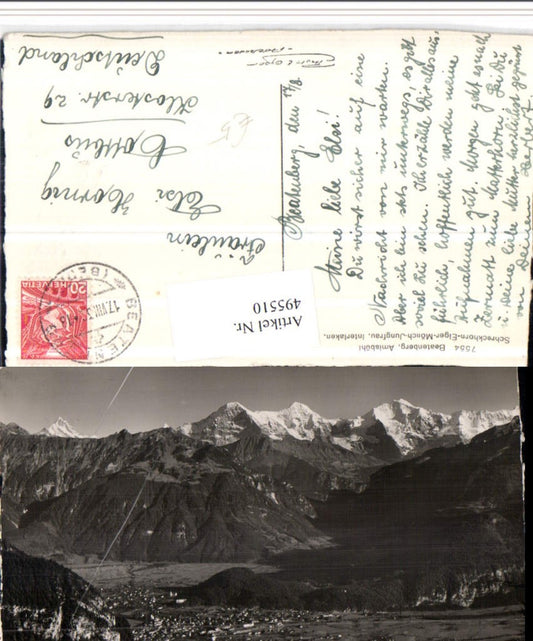 Beatenberg, den 17/8
Meine liebe Elsi!
Du wirst sicher auf eine
Nachricht von mir warten.
Aber ich bin stets unterwegs, es gibt
soviel zu sehen. Ich erzähle Dir alles aus-
führlich, hoffentlich werden meine
Aufnahmen gut. Morgen geht es nach
Zermatt zum Matterhorn. Sei Du
u. Deine liebe Mutter herzlichst gegrüßt
von Deinem Herbert
Fräulein
Elsi Hornig
Cottbus
Klosterstr. 29
Deutschland
HELVETIA
20
BEATEN
17.VIII.3
Artikel Nr.
495510
7554 Beatenberg, Amisbühl
Schreckhorn-Eiger-Mönch-Jungfrau, Interlaken.